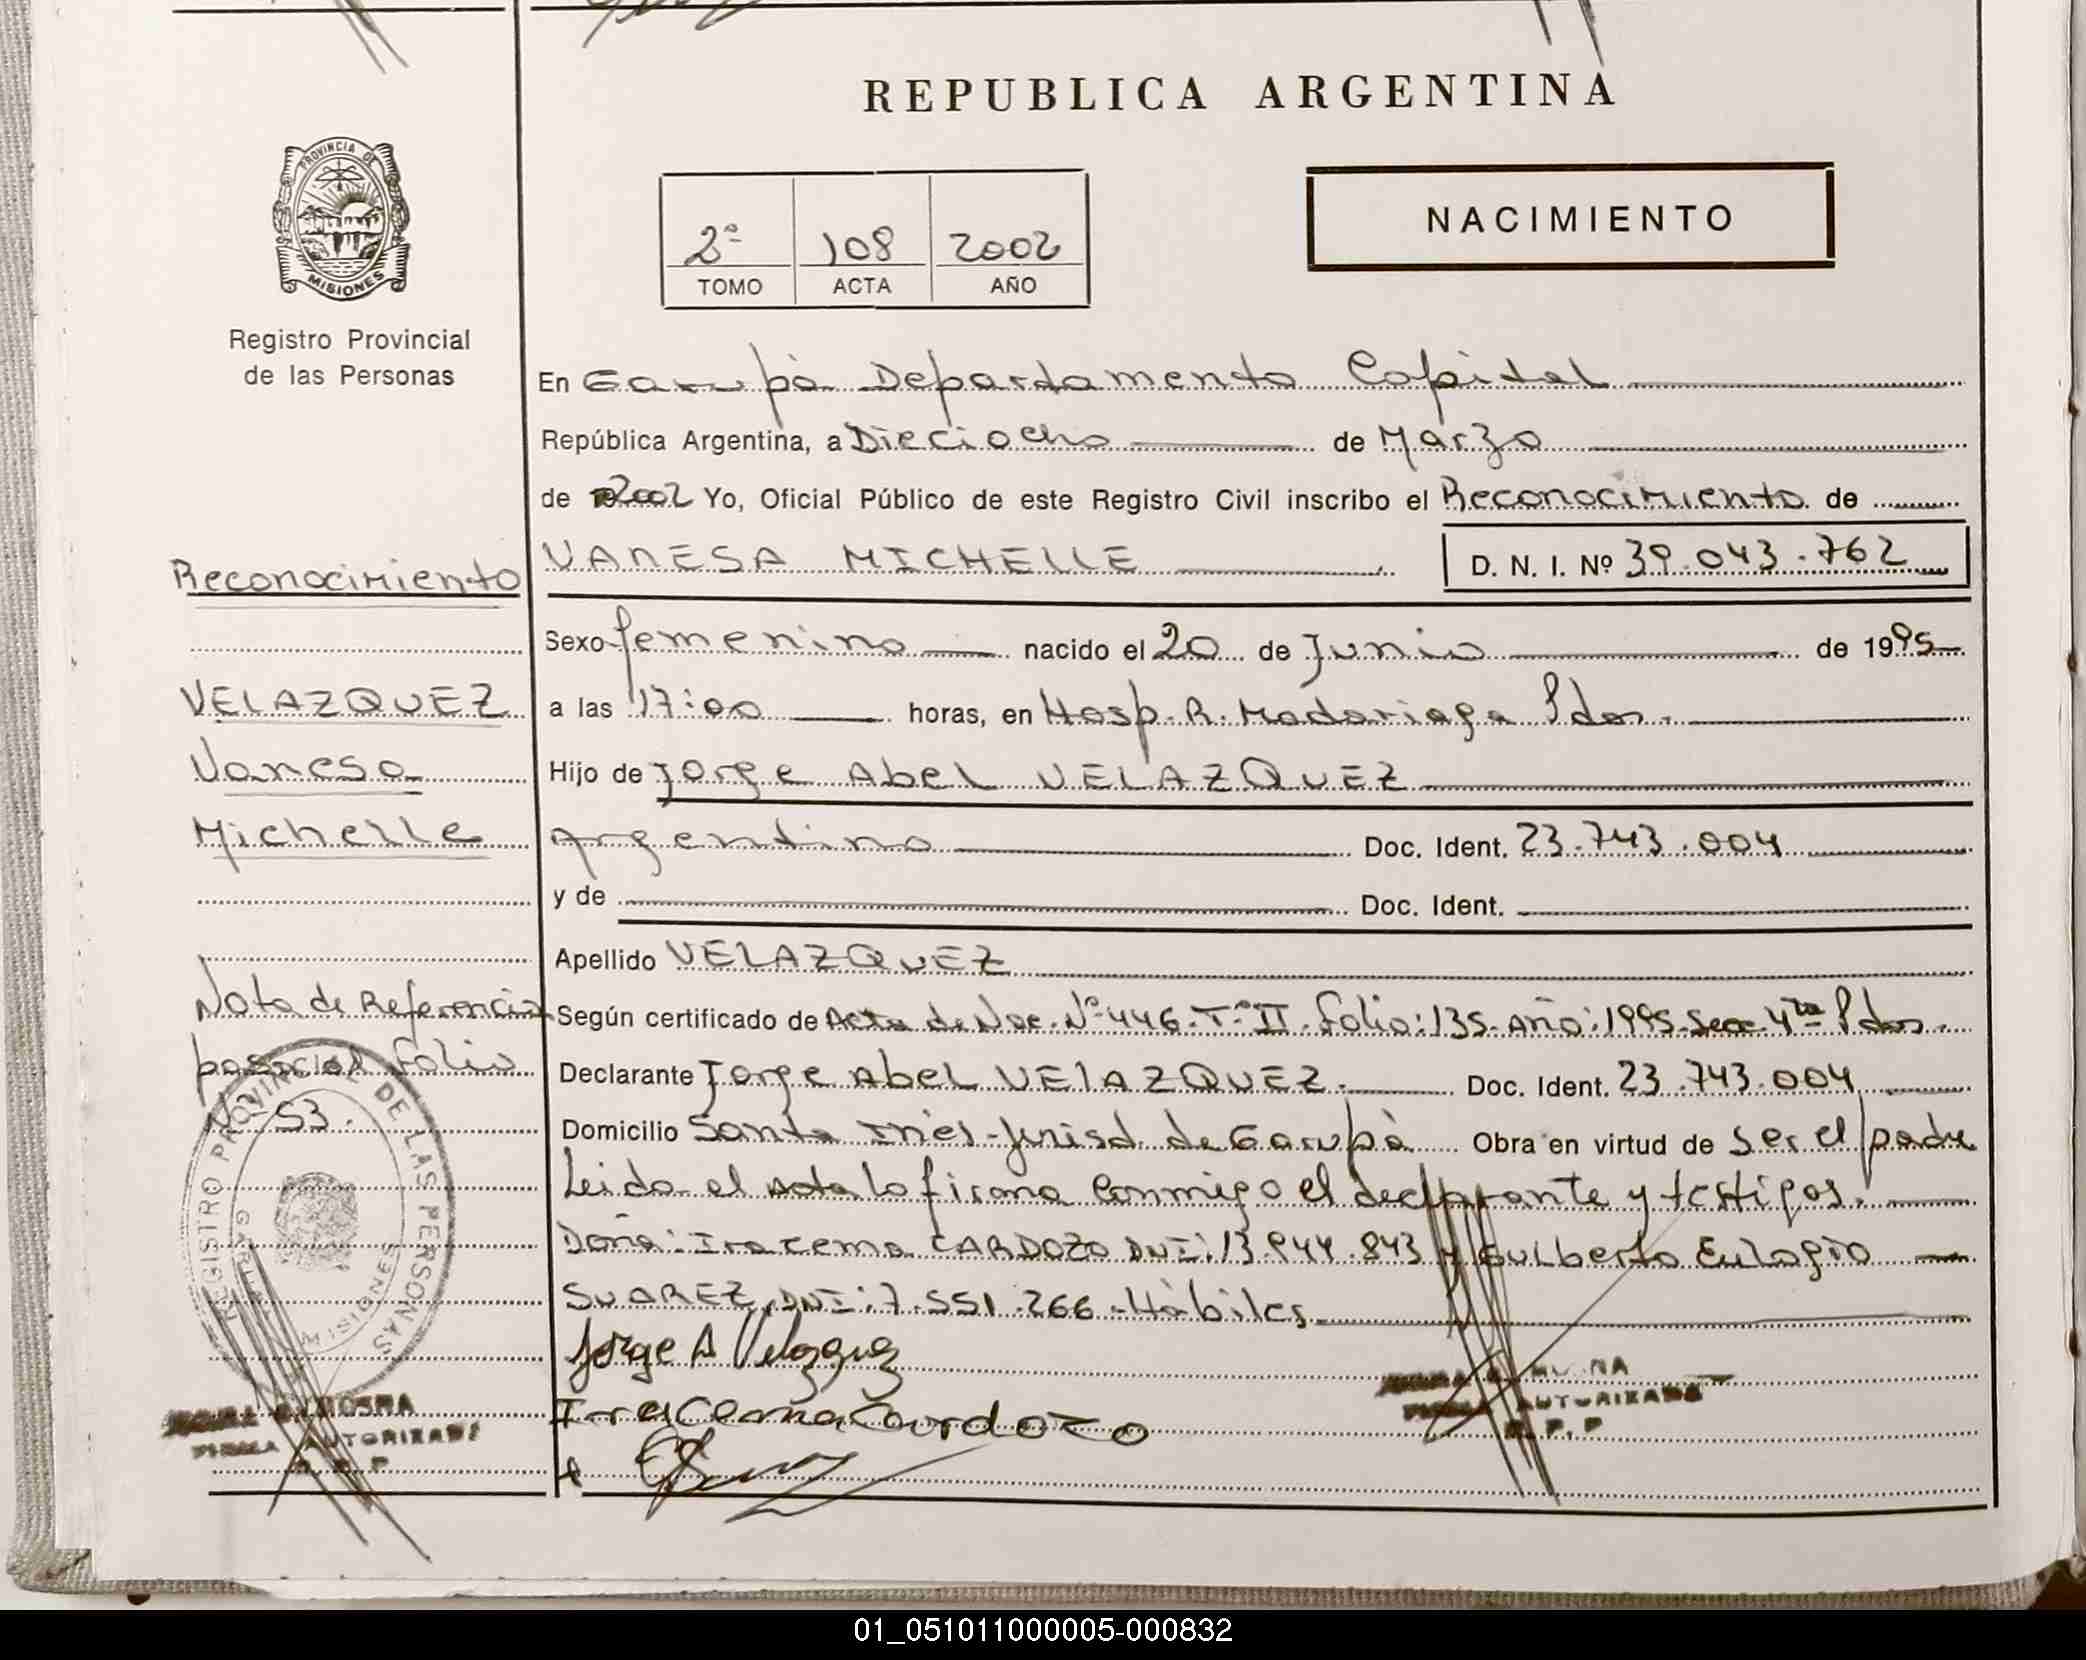 REPUBLICA ARGENTINA
PROVINCIA DE
MISIONES
Registro Provincial
de las Personas
2º 108 2002
TOMO ACTA AÑO
NACIMIENTO
En Garupà Departamento Capital
República Argentina, a Dieciocho de Marzo
de 2002 Yo, Oficial Público de este Registro Civil inscribo el Reconocimiento de
VANESA MICHELLE D. N. I. Nº 39.043.762
Sexo femenino nacido el 20 de Junio de 1995
a las 17:00 horas, en Hosp. R. Madariaga Pdas.
Hijo de Jorge Abel VELAZQUEZ
Argentino Doc. Ident. 23.743.004
y de Doc. Ident.
Apellido VELAZQUEZ
Según certificado de Acta de Nac. Nº 446. Tº II. folio: 135. Año: 1995. Secc 4ta Pdas.
Declarante Jorge Abel VELAZQUEZ. Doc. Ident. 23.743.004
Domicilio Santa Inés - Jurisd. de Garupà Obra en virtud de ser el padre
Leida el acta la firma conmigo el declarante y testigos.
Doña: Iracema CARDOZO DNI: 13.944.843 y Gulberto Eulogio
SUAREZ, DNI: 7.551.266 - Hàbiles
Jorge A Velazquez
Iracema Cardozo
Reconocimiento
VELAZQUEZ
Vanesa
Michelle
Nota de Referencia
pasa al folio
Nº 53.
REGISTRO PROVINCIAL DE LAS PERSONAS
MISIONES
FIRMA AUTORIZADA
R. P. P
AUTORIZADA
R. P. P
01_051011000005-000832